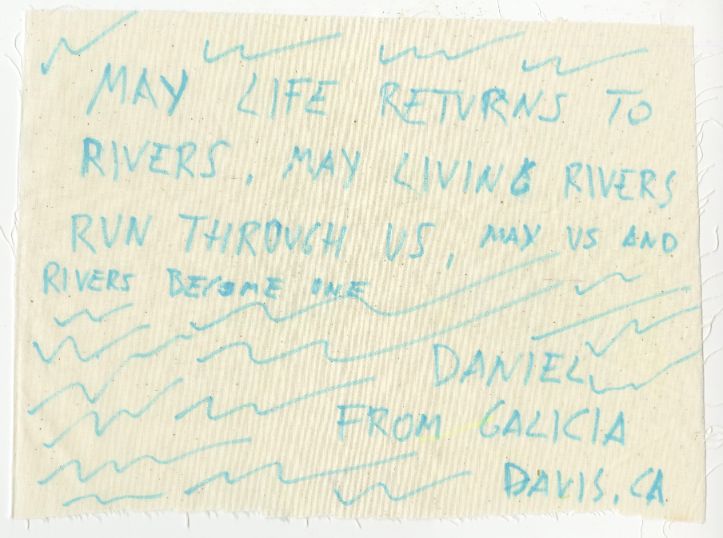 MAY LIFE RETURNS TO
RIVERS, MAY LIVING RIVERS
RUN THROUGH US, MAY US AND
RIVERS BECOME ONE
DANIEL
FROM GALICIA
DAVIS, CA